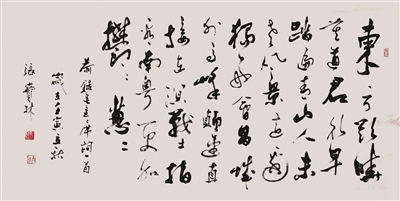 東方欲曉
莫道君行早
踏遍青山人未
老風景這邊
獨好會昌城
外高峰顛連直
接東溟戰士指
看南粵更加
鬱々葱々
錄毛主席詞一首
歲在壬寅立秋
張寶珠